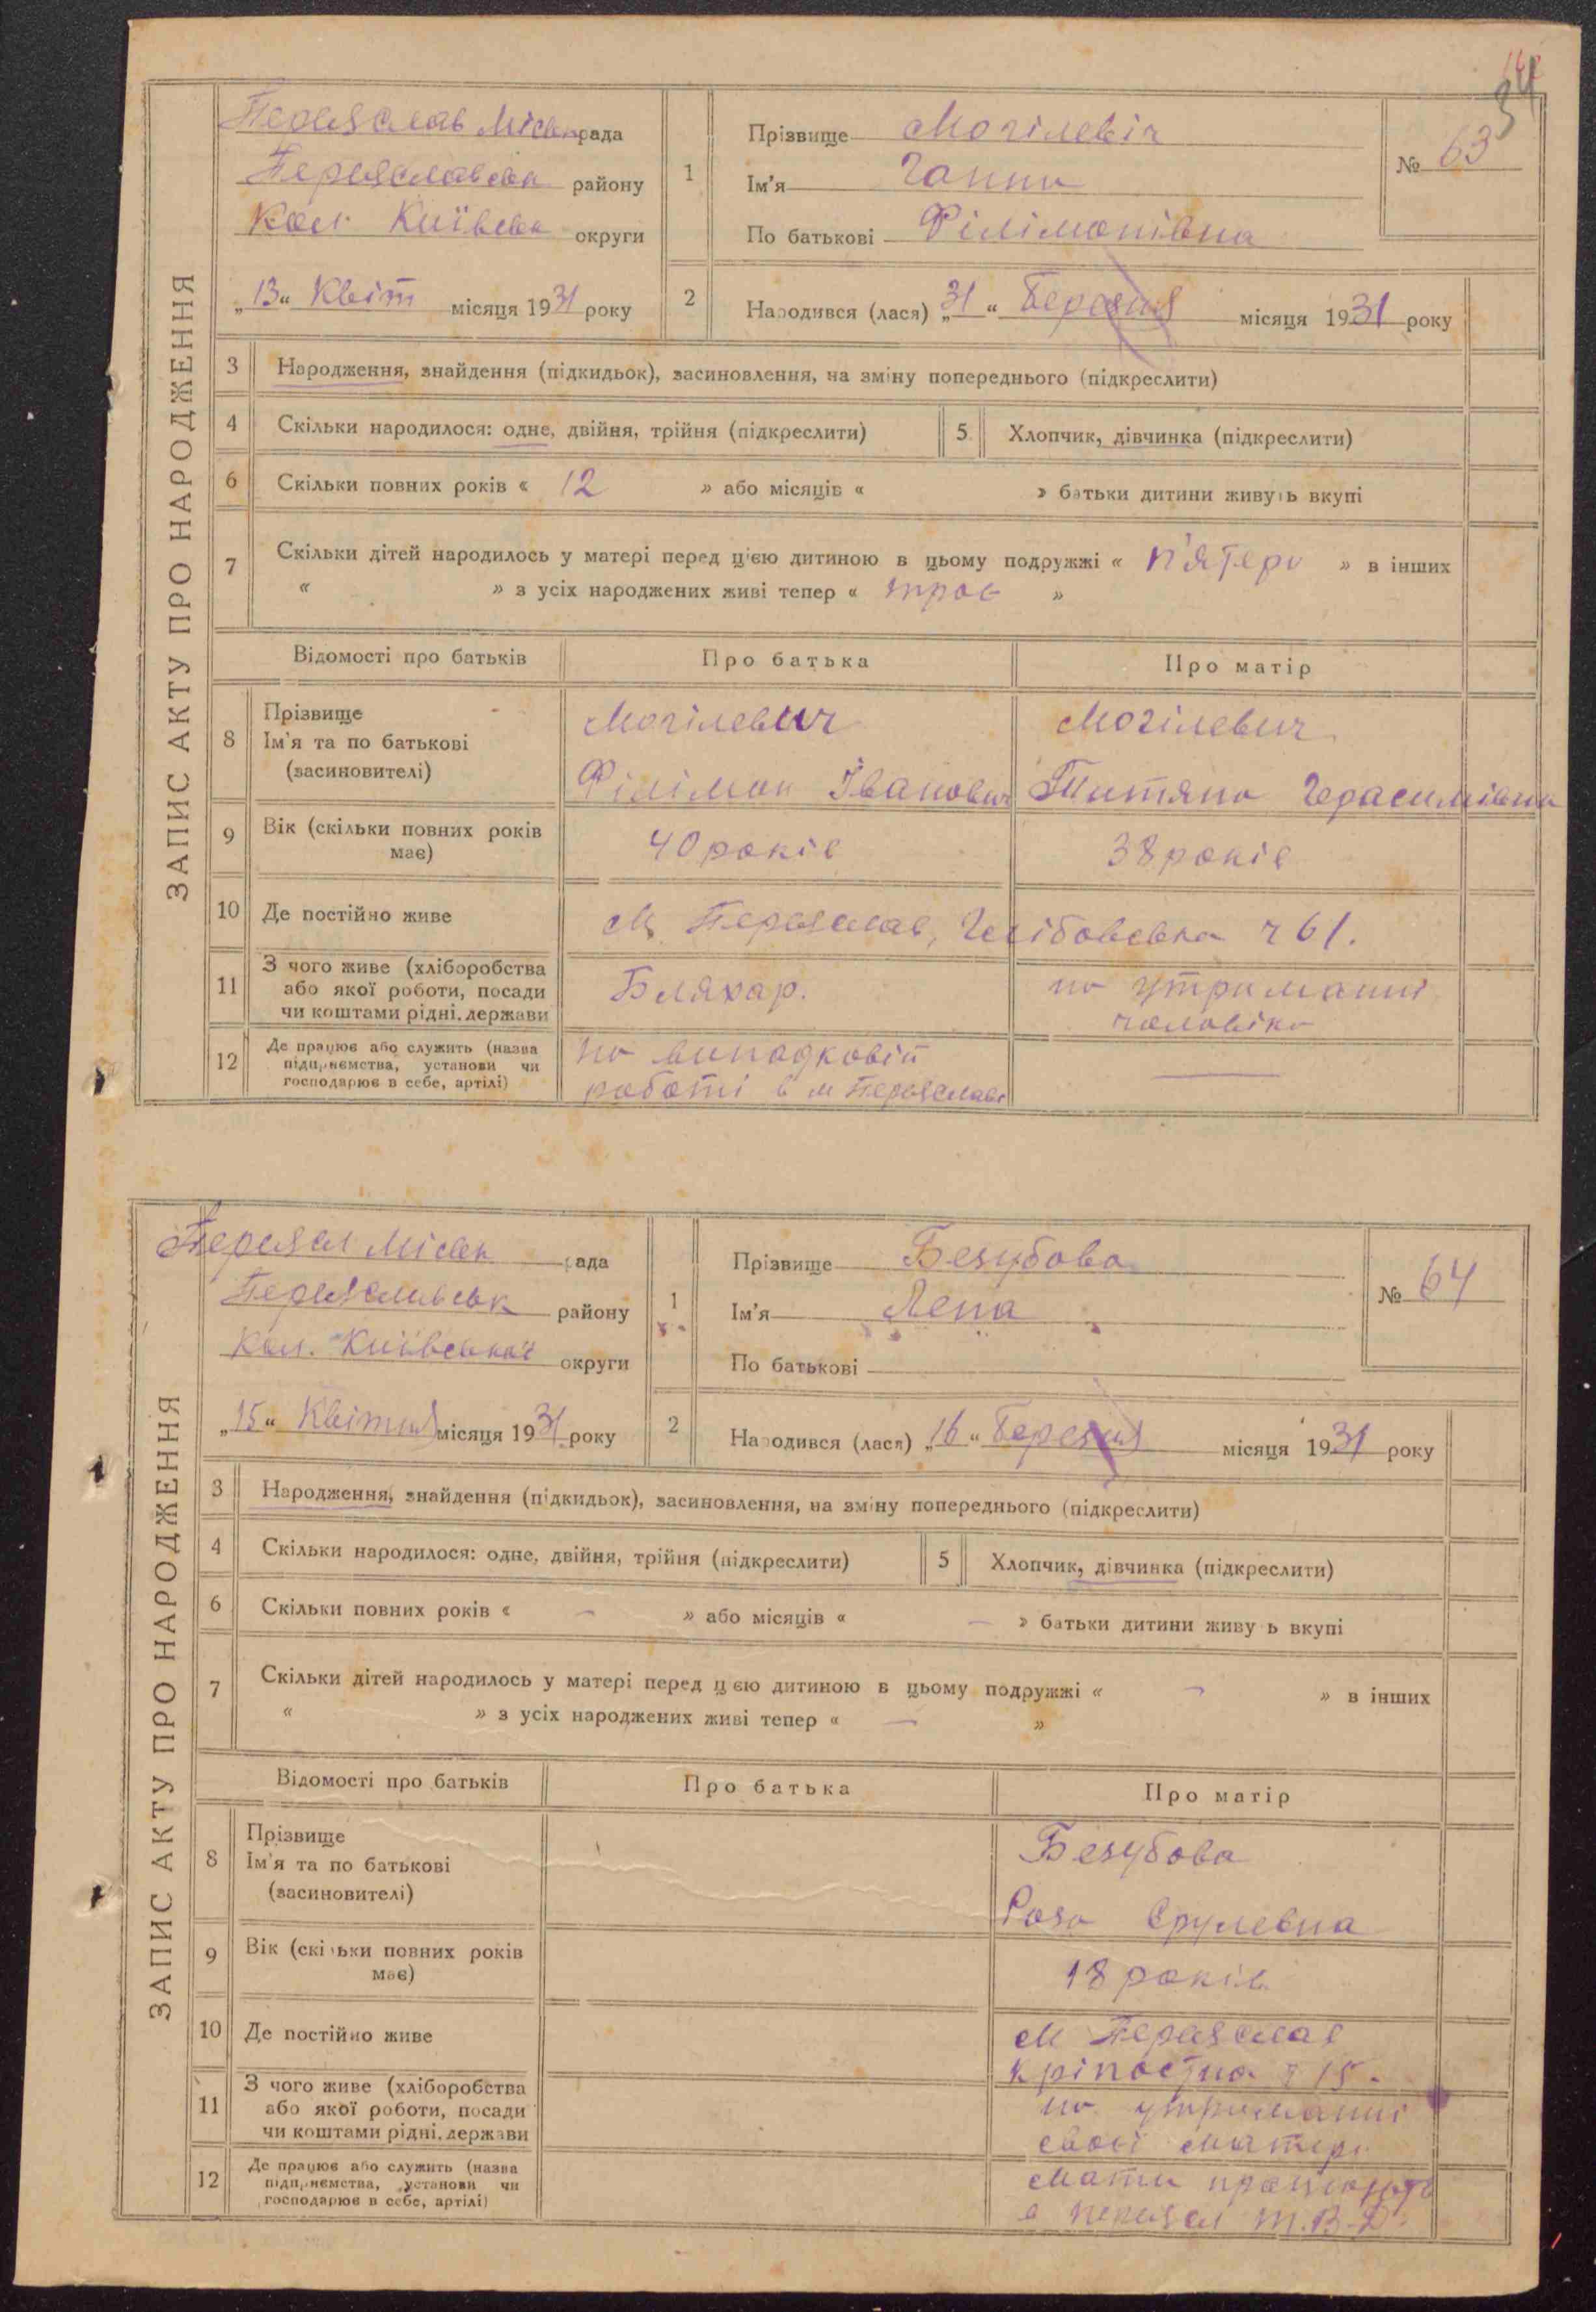 34
ЗАПИС АКТУ ПРО НАРОДЖЕННЯ
Переяслав Міськ рада
Переяславськ району
Кол. Київськ округи
„13“ Квіт місяця 1931 року
1 Прізвище Могілевіч
Ім'я Ганна
По батькові Філімонівна
№ 63
2 Народився (лася) „31“ Березня місяця 1931 року
3 Народження, знайдення (підкидьок), засиновлення, на зміну попереднього (підкреслити)
4 Скільки народилося: одне, двійня, трійня (підкреслити) 5 Хлопчик, дівчинка (підкреслити)
6 Скільки повних років « 12 » або місяців « » батьки дитини живуть вкупі
7 Скільки дітей народилось у матері перед цією дитиною в цьому подружжі « п'ятеро » в інших
« » з усіх народжених живі тепер « троє »
Відомості про батьків Про батька Про матір
8 Прізвище Могілевич Могілевич
Ім'я та по батькові
(засиновителі) Філімон Іванович Титяна Герасимівна
9 Вік (скільки повних років має) 40 років 38 років
10 Де постійно живе м. Переяслав, Глібовська ч 61.
11 З чого живе (хліборобства Бляхар. на утриманні
або якої роботи, посади чоловіка
чи коштами рідні, держави
12 Де працює або служить (назва на випадковій
підприємства, установи чи роботі в м Переяславі
господарює в себе, артілі)
ЗАПИС АКТУ ПРО НАРОДЖЕННЯ
Переясл Міськ рада
Переяславськ району
Кол. Київської округи
„15“ Квітня місяця 1931 року
1 Прізвище Безубова
Ім'я Лена
По батькові
№ 64
2 Народився (лася) „16“ Березня місяця 1931 року
3 Народження, знайдення (підкидьок), засиновлення, на зміну попереднього (підкреслити)
4 Скільки народилося: одне, двійня, трійня (підкреслити) 5 Хлопчик, дівчинка (підкреслити)
6 Скільки повних років « - » або місяців « - » батьки дитини живуть вкупі
7 Скільки дітей народилось у матері перед цією дитиною в цьому подружжі « - » в інших
« » з усіх народжених живі тепер « - »
Відомості про батьків Про батька Про матір
8 Прізвище Безубова
Ім'я та по батькові
(засиновителі) Роза Срулевна
9 Вік (скільки повних років має) 18 років
10 Де постійно живе м Переяслав
Кріпостна ч 15.
11 З чого живе (хліборобства на утриманні
або якої роботи, посади своєї матері
чи коштами рідні, держави
12 Де працює або служить (назва мати працюють
підприємства, установи чи в Переясл
господарює в себе, артілі)